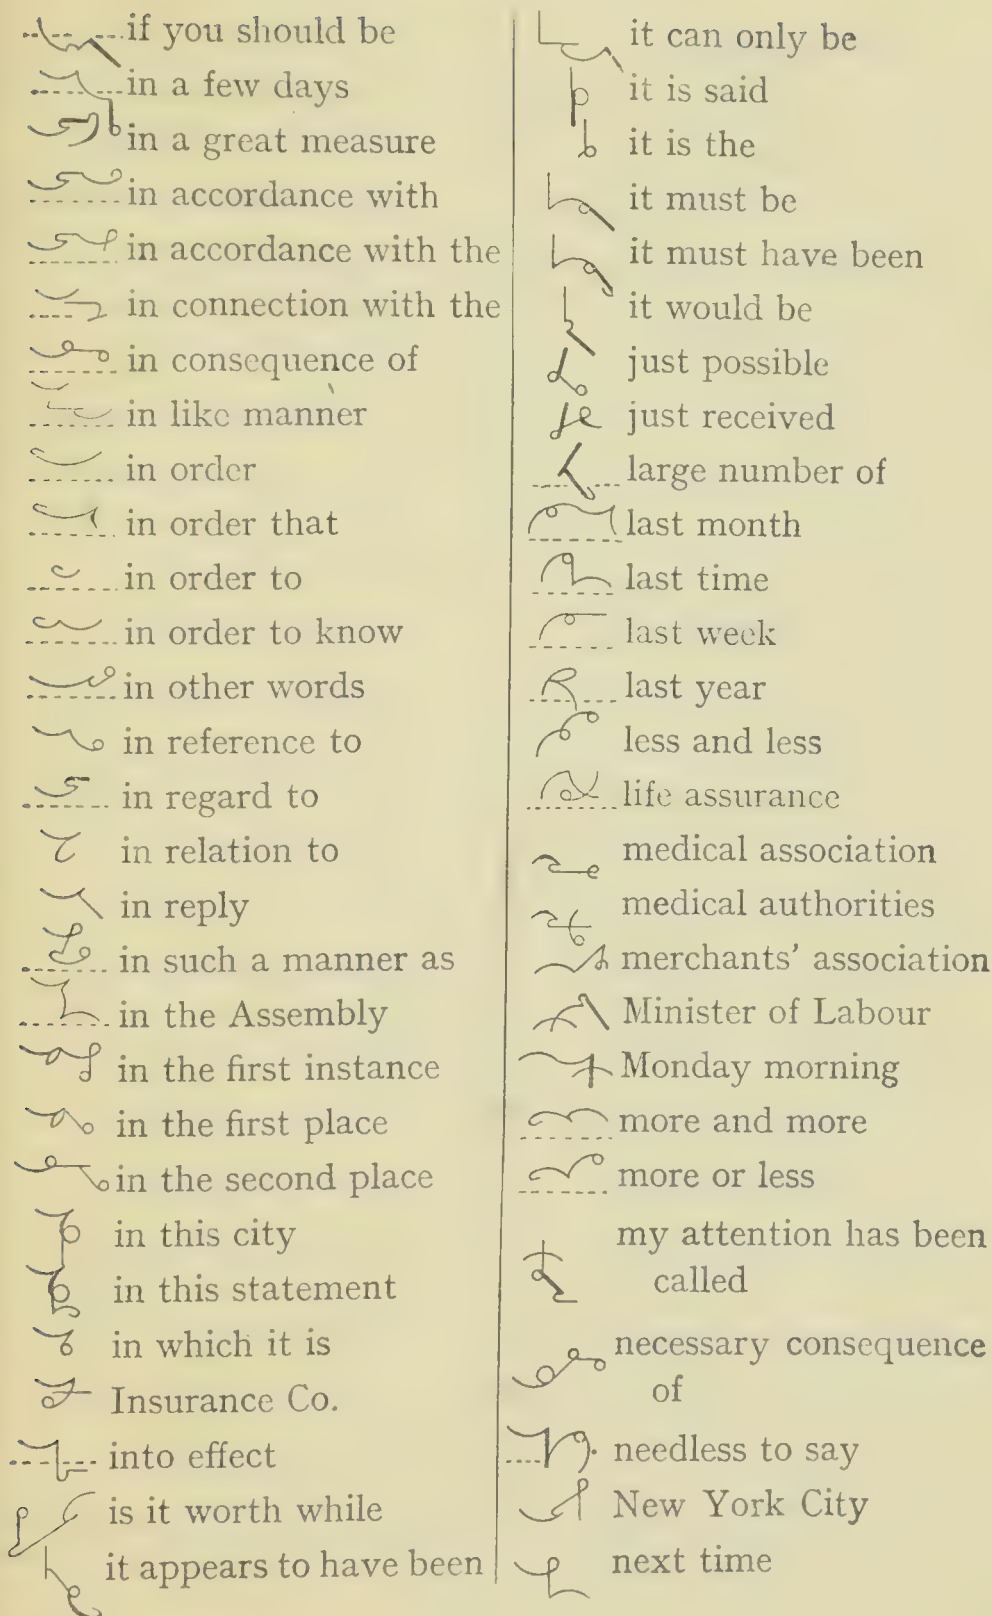 if you should be
in a few days
in a great measure
in accordance with
in accordance with the
in connection with the
in consequence of
in like manner
in order
in order that
in order to
in order to know
in other words
in reference to
in regard to
in relation to
in reply
in such a manner as
in the Assembly
in the first instance
in the first place
in the second place
in this city
in this statement
in which it is
Insurance Co.
into effect
is it worth while
it appears to have been
it can only be
it is said
it is the
it must be
it must have been
it would be
just possible
just received
large number of
last month
last time
last week
last year
less and less
life assurance
medical association
medical authorities
merchants' association
Minister of Labour
Monday morning
more and more
more or less
my attention has been
called
necessary consequence
of
needless to say
New York City
next time